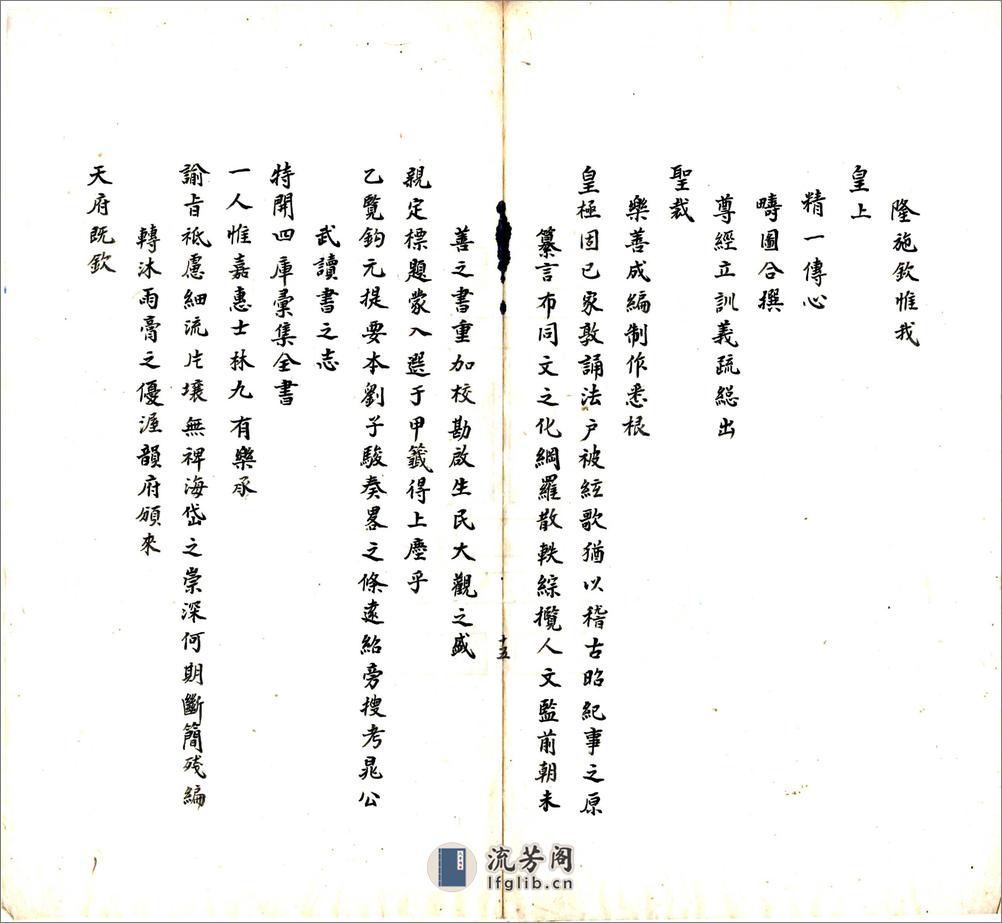 隆施欽惟我
皇上
精一傳心
疇圖合撰
尊經立訓義疏総出
聖裁
樂善成編制作悉根
皇極固已家敦誦法戶被絃歌猶以稽古昭紀事之原
纂言布同文之化網羅散軼綜攬人文監前朝未
十五
善之書重加校勘啟生民大觀之盛
親定標題蒙入選于甲籖得上塵乎
乙覽鈎元提要本劉子駿奏畧之條遠紹旁搜考晁公
武讀書之志
特開四庫彙集全書
一人惟嘉惠士林九有樂承
諭旨祗慮細流片壤無裨海岱之崇深何期斷簡殘編
轉沐雨膏之優渥韻府頒來
天府既欽
流芳阁
lfglib.cn